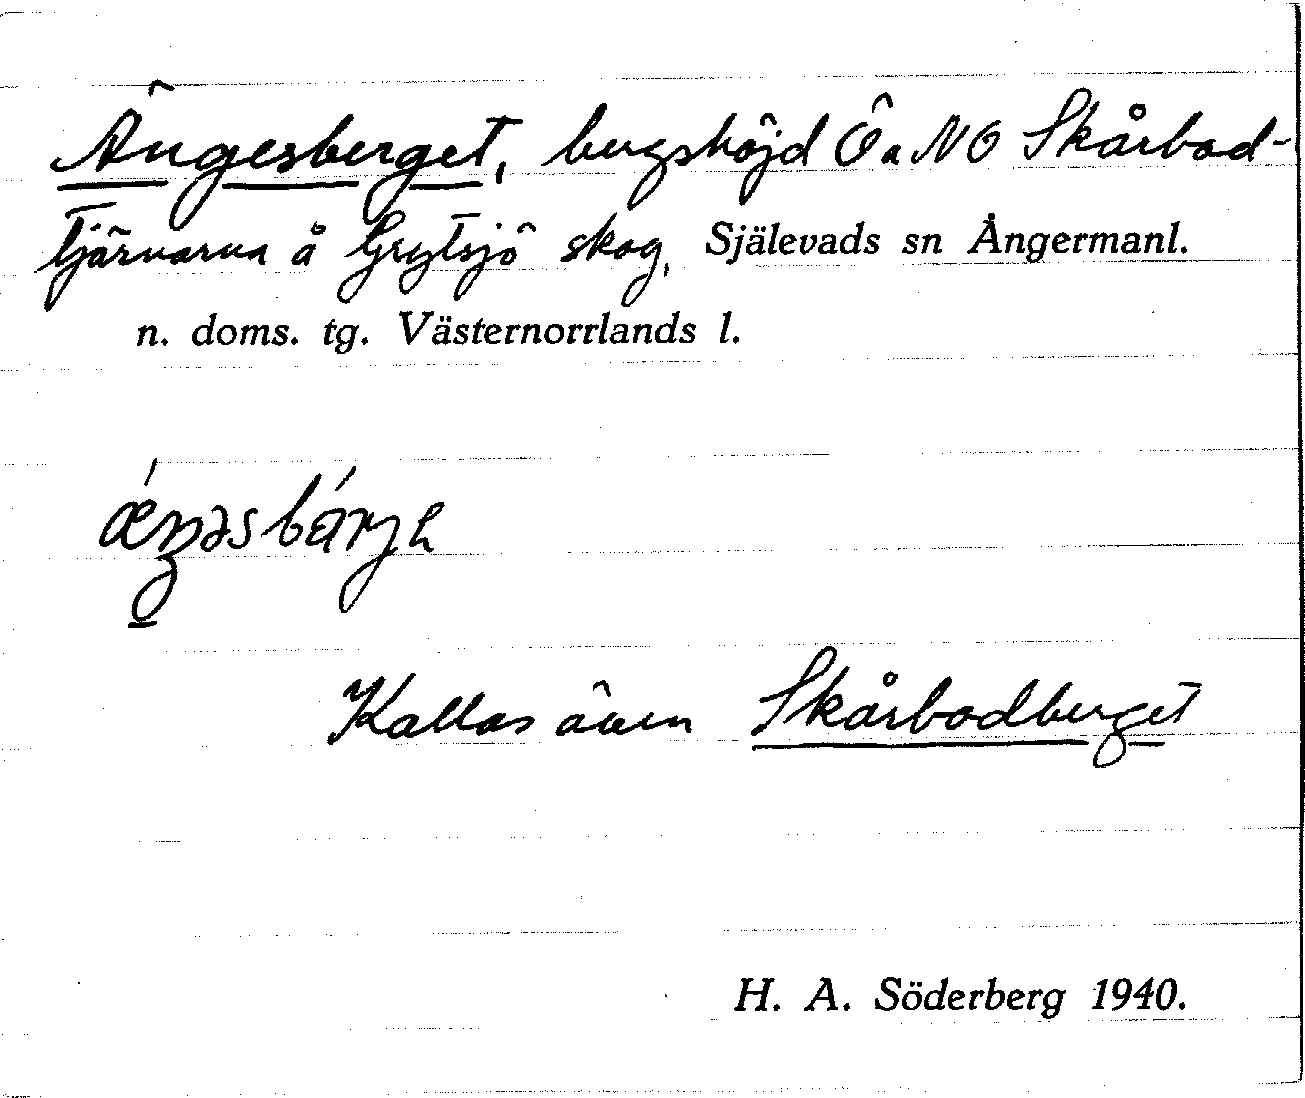 Ängesberget, bergshöjd Ö o NO Skårbod-
tjärnarna å Grytsjö skog, Själevads sn Ångermanl.
n. doms. tg. Västernorrlands l.
Kallas även Skårbodberget
H. A. Söderberg 1940.